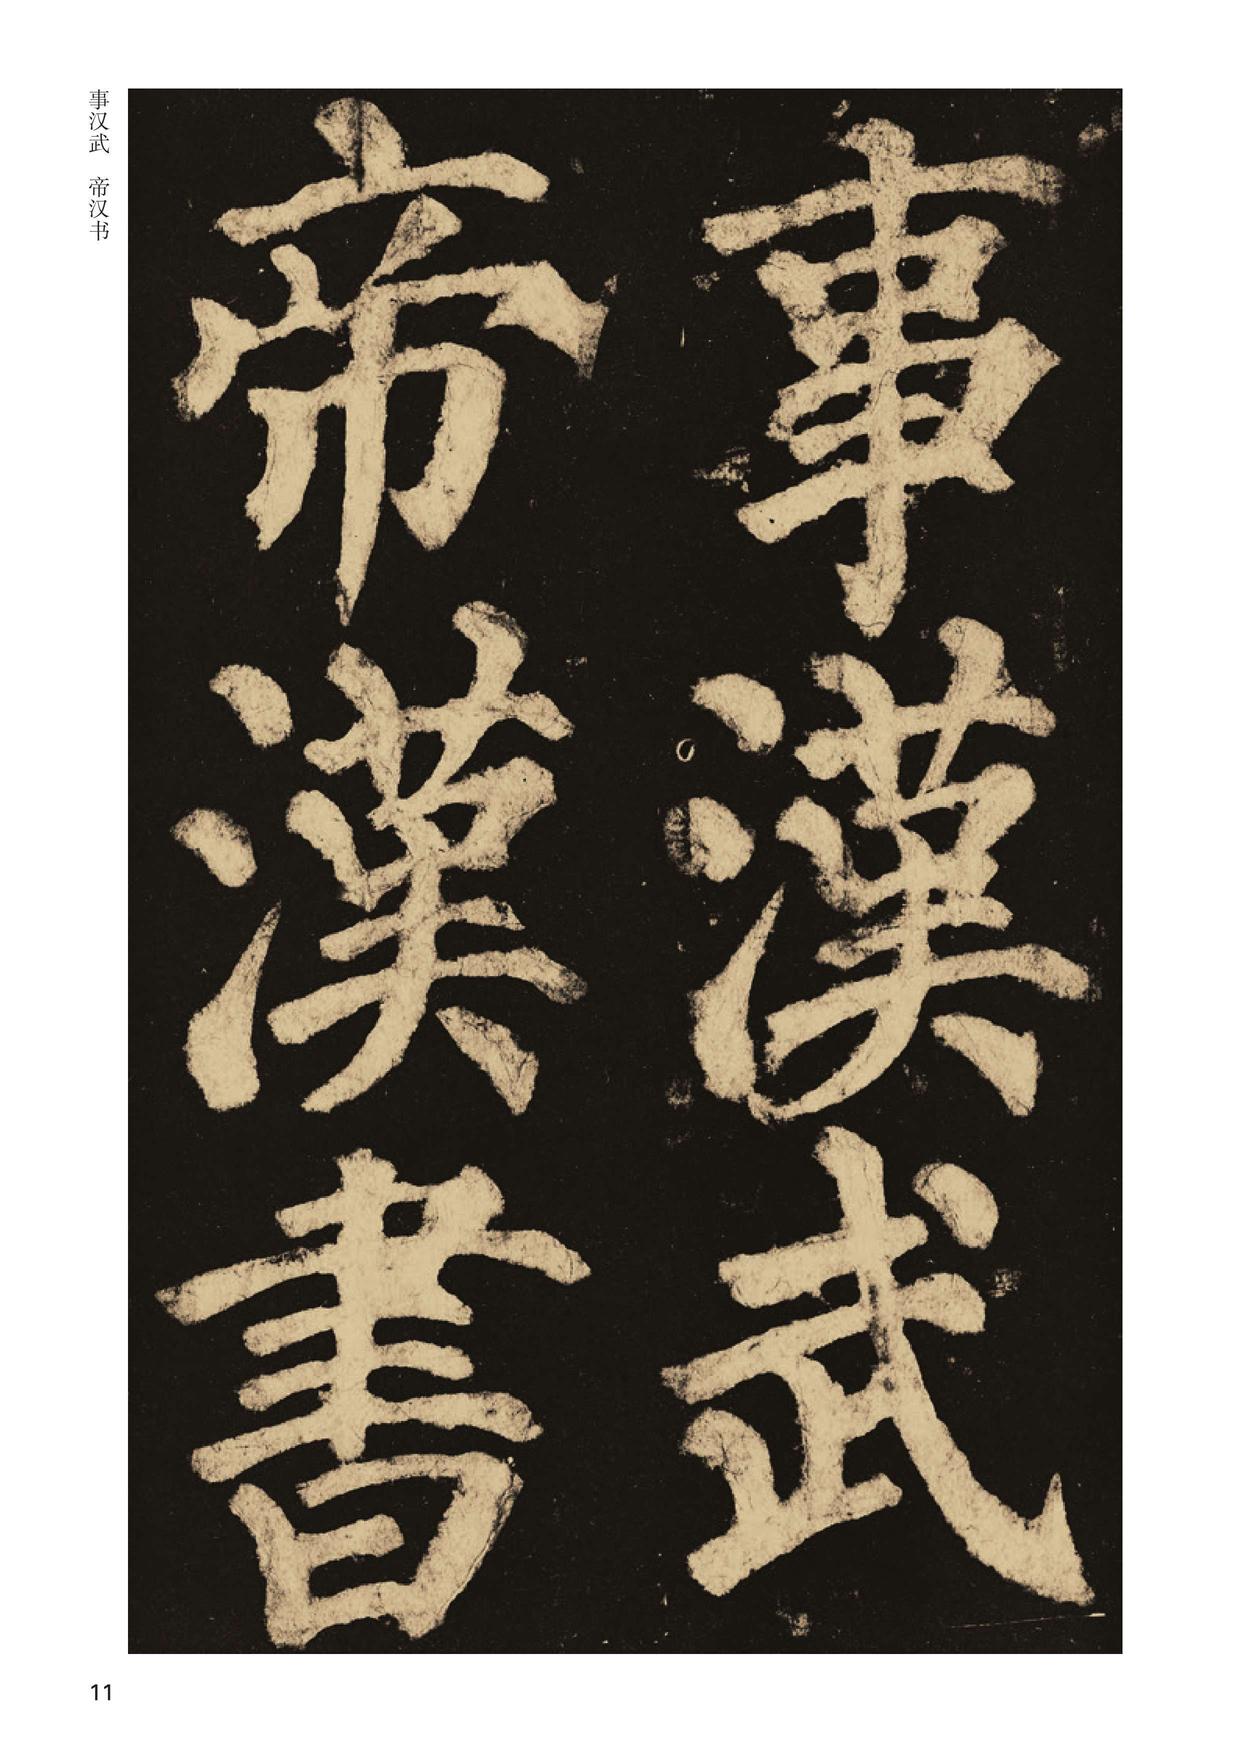 事汉武 帝汉书
事漢武
帝漢書
11